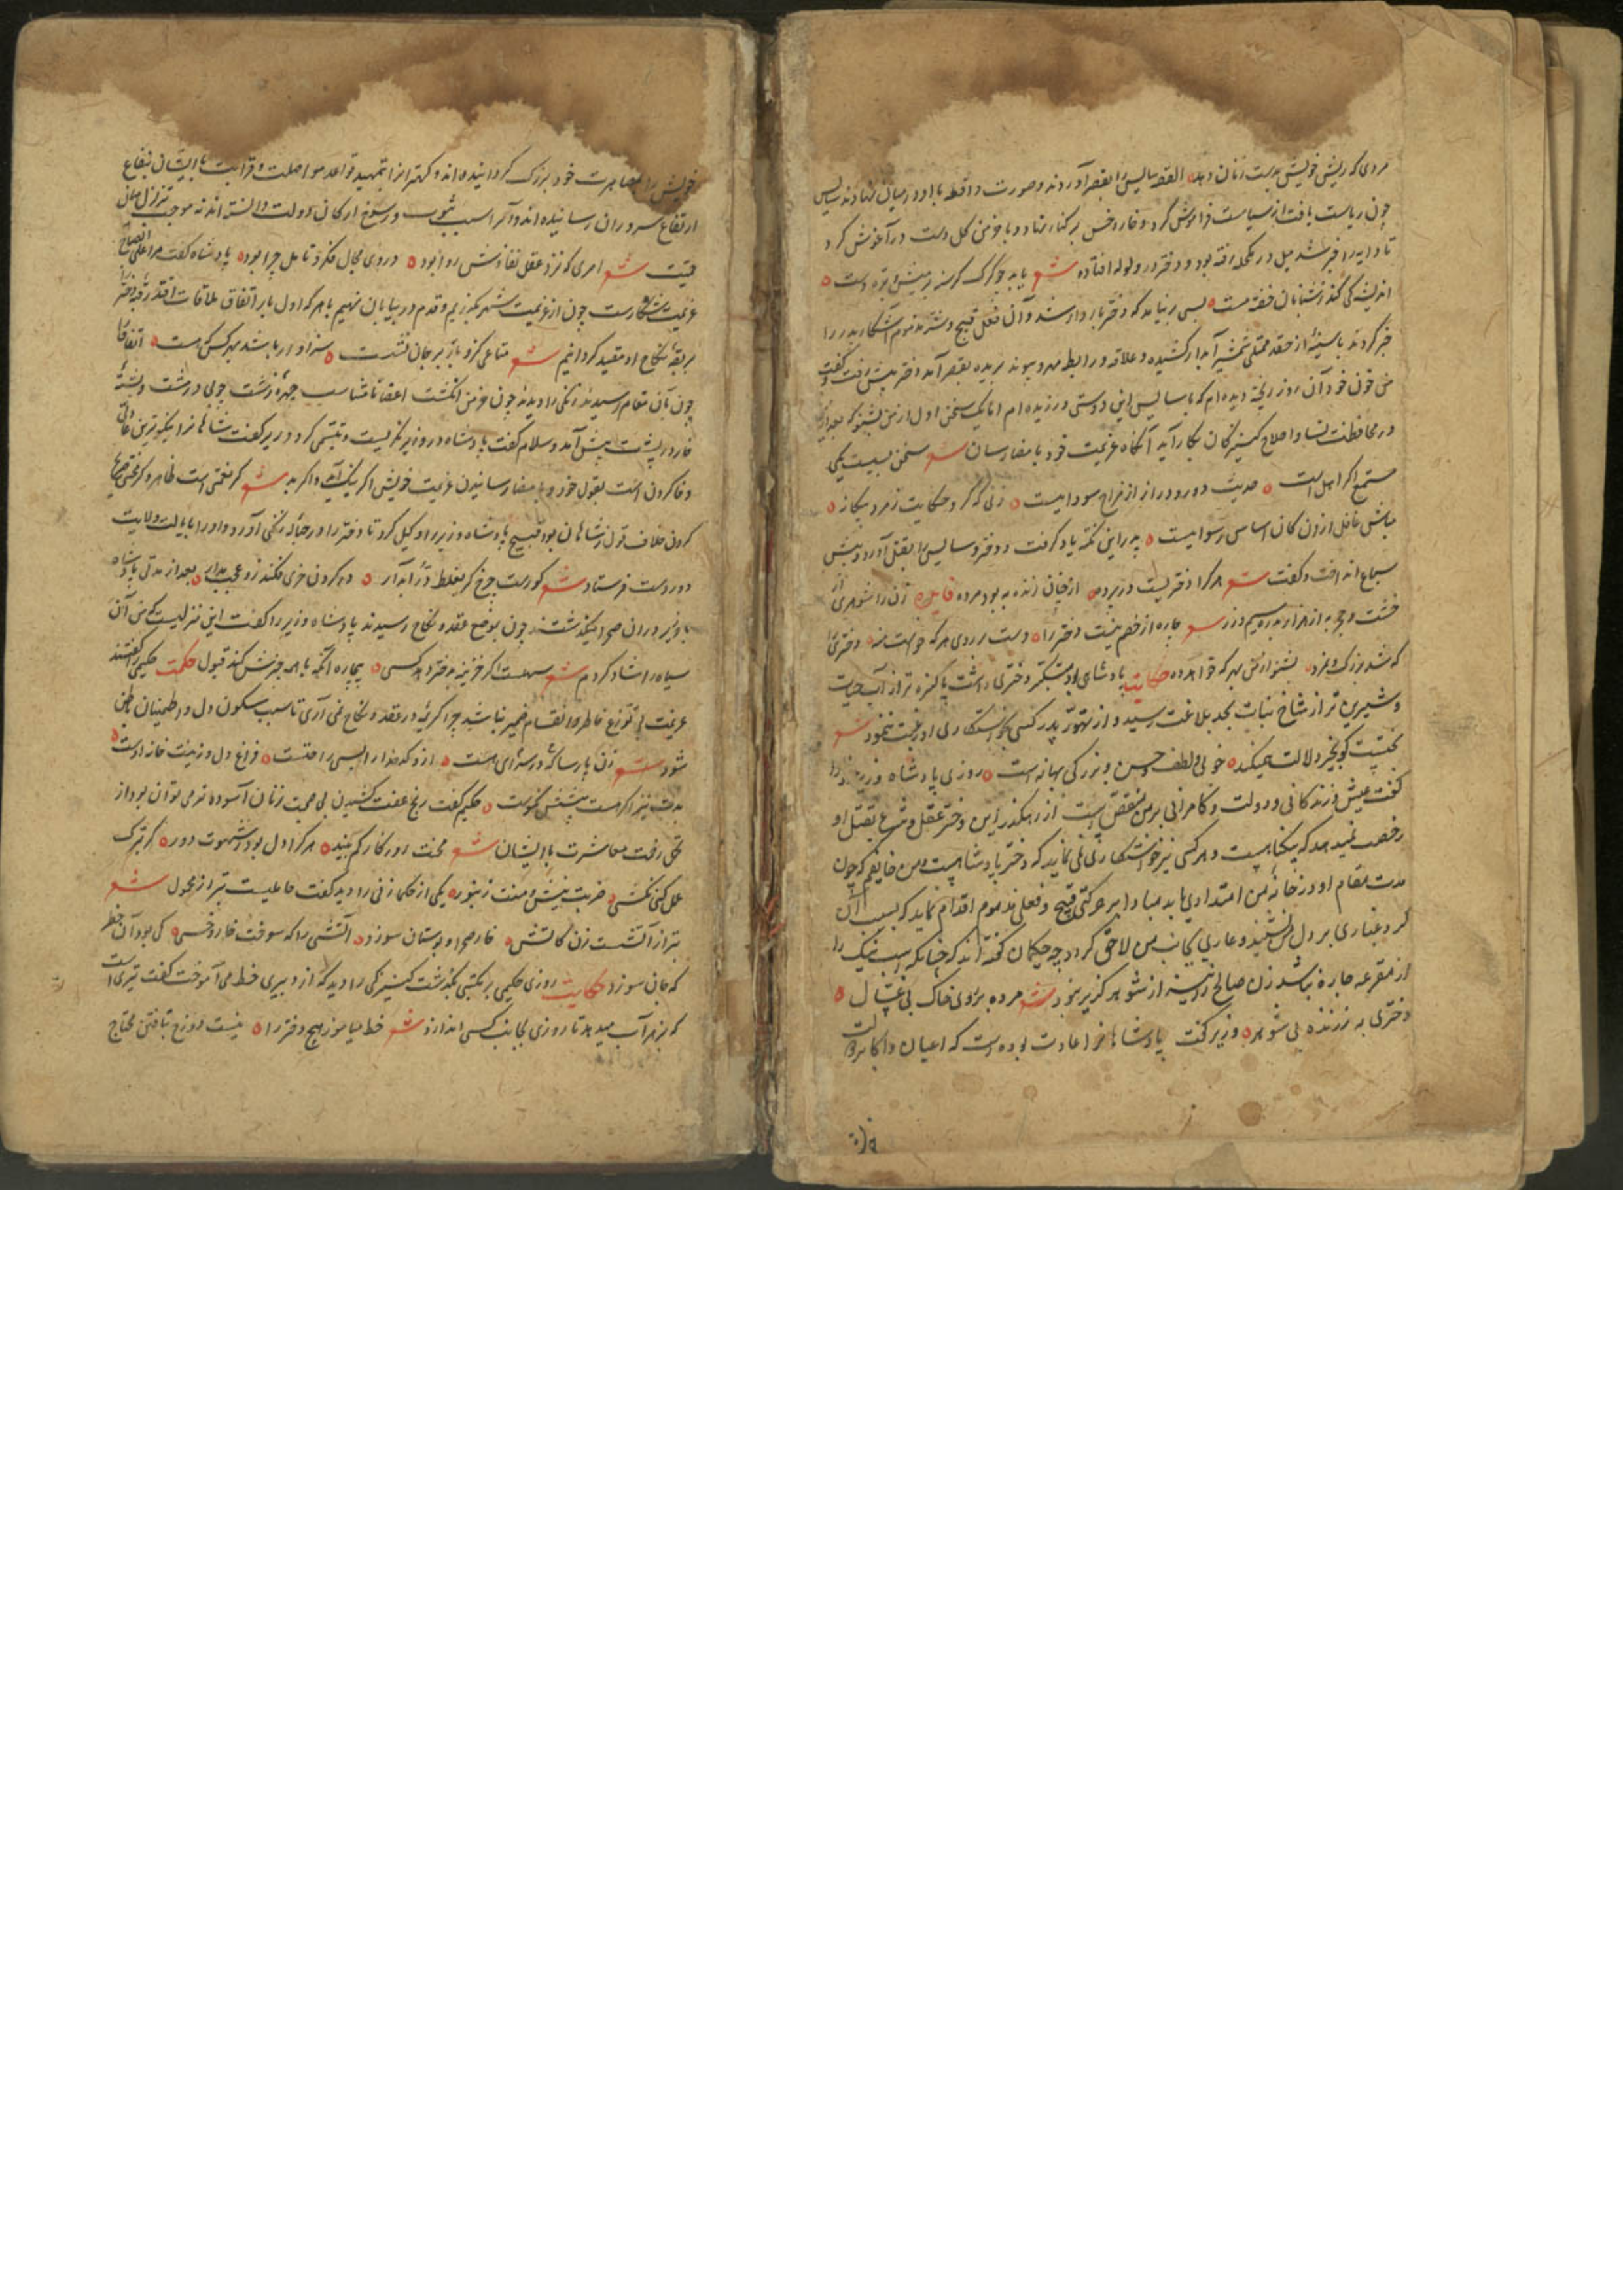 مردی که ریش خویش بدست زنان دهد القصه سایس را بقصر آوردند وصورت واقعه با او در میان نهادند سایس
چون ریاست یافت از سیاست فراموش کرد و خار و خس بر کنار نهاد و با خرمن گل دست در آغوش کرد
تا دایه را خبر شد میل در مکحله رفته بود و دختر در ولوله افتاده شعر
اندیشه کی کند ز شبانان خفته مست بسی برنیامد که دختر باردار شد و آن فعل قبیح و سر مذموم آشکار پدر را
خبر کردند با سینهٔ از حقد ممتلی شمشیر آبدار کشیده و علاقه و رابطه مهر و پیوند بریده بقصر آمد دختر پیش رفت و گفت
من خون خود آن روز ریخته دیده ام که با سایس این دوستی ورزیده ام اما یک سخن اول از من بشنو که بعد از من
در محافظت نسا و اصلاح کنیزکان بکار آید آنگاه عزیمت خود بامضا رسان شعر سخن بسیست یکی
مستمع اگر اهل است حدیث دور و دراز از مزاج سوداییست زنی که کر و حکایت ز مرد بیگانه
مباش غافل ازو کان اساس رسواییست پدر این نکته یاد گرفت و دختر و سایس را بقتل آورد و پیش
سباع انداخت و گفت شعر هرکرا دختریست در پرده از چنان زنده به بود مرده
خشت و حجره به از هزار بدره سیم و زر شعر چاره از خصم نیست دختر را دست بر روی هرکه خواست منه دختری را
که شد بزرگ و نمرد بشنو از من بهر که خواهد ده حکایت پادشاهی بود متکبر و دختری داشت پاکیزه تر از آب حیات
و شیرین تر از شاخ نبات بحد بلاغت رسید و از تهور پدر کسی بخواستگاری او رغبت ننمود شعر
بخت نیک گو بخیر دلالت همیکند خوبی و لطف و حسن و بزرگی بهانه است روزی پادشاه وزیر را
گفت عیش زندگانی و دولت و کامرانی بر من منغص است از رهگذر این دختر عقل و شرع بقتل او
رخصت نمیدهد که بیگناهست و هر کسی نیز خواستگاری نمی نماید که دختر پادشاهست و من خایفم که چون
مدت مقام او در خانهٔ من امتداد یابد مبادا بر حرکتی قبیح و فعلی مذموم اقدام نماید که بسبب آن
گرد و غباری بر دل من نشیند و عاری بجانب من لاحق گردد چه حکیمان گفته اند که چنانکه اسب نیک را
از مقرعه چاره نباشد زن صالح را نیز از شوهر گزیر نبود شعر مرده بر روی خاک بی غسال
دختری به ز زنده بی شوهر وزیر گفت پادشاهانرا عادت بوده است که اعیان و اکابر دولت
خویش را بمصاهرت خود بزرگ گردانیده اند و کهتر انرا بتمهید قواعد مواصلت و قرابت با ایشان بیفاع
ارتفاع سروران رسانیده اند و آنرا سبب ثبوت و رسوخ ارکان دولت دانسته اند نه موجب تزلزل مبانی
حمیت شعر امری که نزد عقل نفاذش روا بود در وی مجال فکر و تامل چرا بود پادشاه گفت مرا علی الصباح
عزیمت شکارست چون از عزیمت شهر بگذریم و قدم در بیابان نهیم با هر که اول بار اتفاق ملاقات افتد رقبهٔ دختر را
بربقهٔ نکاح او مقید گردانیم شعر متاعی کزو باز بر جان نشست سزاوار باشد بهر کس که هست اتفاقا
چون بآن مقام رسیدند زنگی را دیدند چون خرمن انگشت اعضا نامتناسب چهرهٔ زشت چوبی در مشت و پشتهٔ
خار در پشت پیش آمد و سلام گفت پادشاه در وزیر نگریست و تبسمی کرد وزیر گفت شاهانرا نیکوترین عادتی
وفا کردن است بقول خود و بامضا رسانیدن عزیمت خویش اگر نیک آید و اگر بد شعر
کردن خلاف قول ز شاهان بود قبیح پادشاه وزیر را وکیل کرد تا دختر را در حبالهٔ زنگی آورد و او را بایالت ولایت
دور دست فرستاد شعر کورست چرخ گر بغلط در آبدار در گردن خری فکند زو عجب مدار بعد از مدتی پادشاه
با وزیر در ان صحرا میگذشتند چون بموضع عقد و نکاح رسیدند پادشاه وزیر را گفت این منزلیست که من آن
سیاه را شاد کردم شعر سهلست اگر خزینه بدختر دهد کسی بیچاره آنکه با همه چیزش کند قبول حکمت حکیمی را گفتند
عزیمت بی توزع خاطر و انقسام ضمیر نباشد چرا کریمهٔ در عقد و نکاح نمی آری تا سبب سکون دل و اطمینان باطن
شود شعر زن پارسا که در سرای هست ازو کدخدا را بسی راحتست فراغ دل و زینت خانه اوست
حکیم گفت رنج عفت کشیدن بی صحبت زنان آسوده تر می توان بود از
تحمل زحمت معاشرت با ایشان شعر محنت روزگار کم بیند هر کرا دل بود ز شهوت دور گر بترک
عسل کنی نکشی ضربت نیش و منت زنبور یکی از حکما زنی را دید گفت حاملیست بتر از محمول شعر
بتر از آتشست زن کاتش خار صحرا و بوستان سوزد آتشی را که سوخت خار و خس کی بود آن خطر
که جان سوزد حکایت روزی حکیمی بر مکتبی بگذشت کنیزکی را دید که از دبیری خط می آموخت گفت تیری است
که بزهر آب میدهد تا روزی بجانب کسی اندازد شعر خط میاموز هیچ دختر را نیست دوزخ بتافتن محتاج